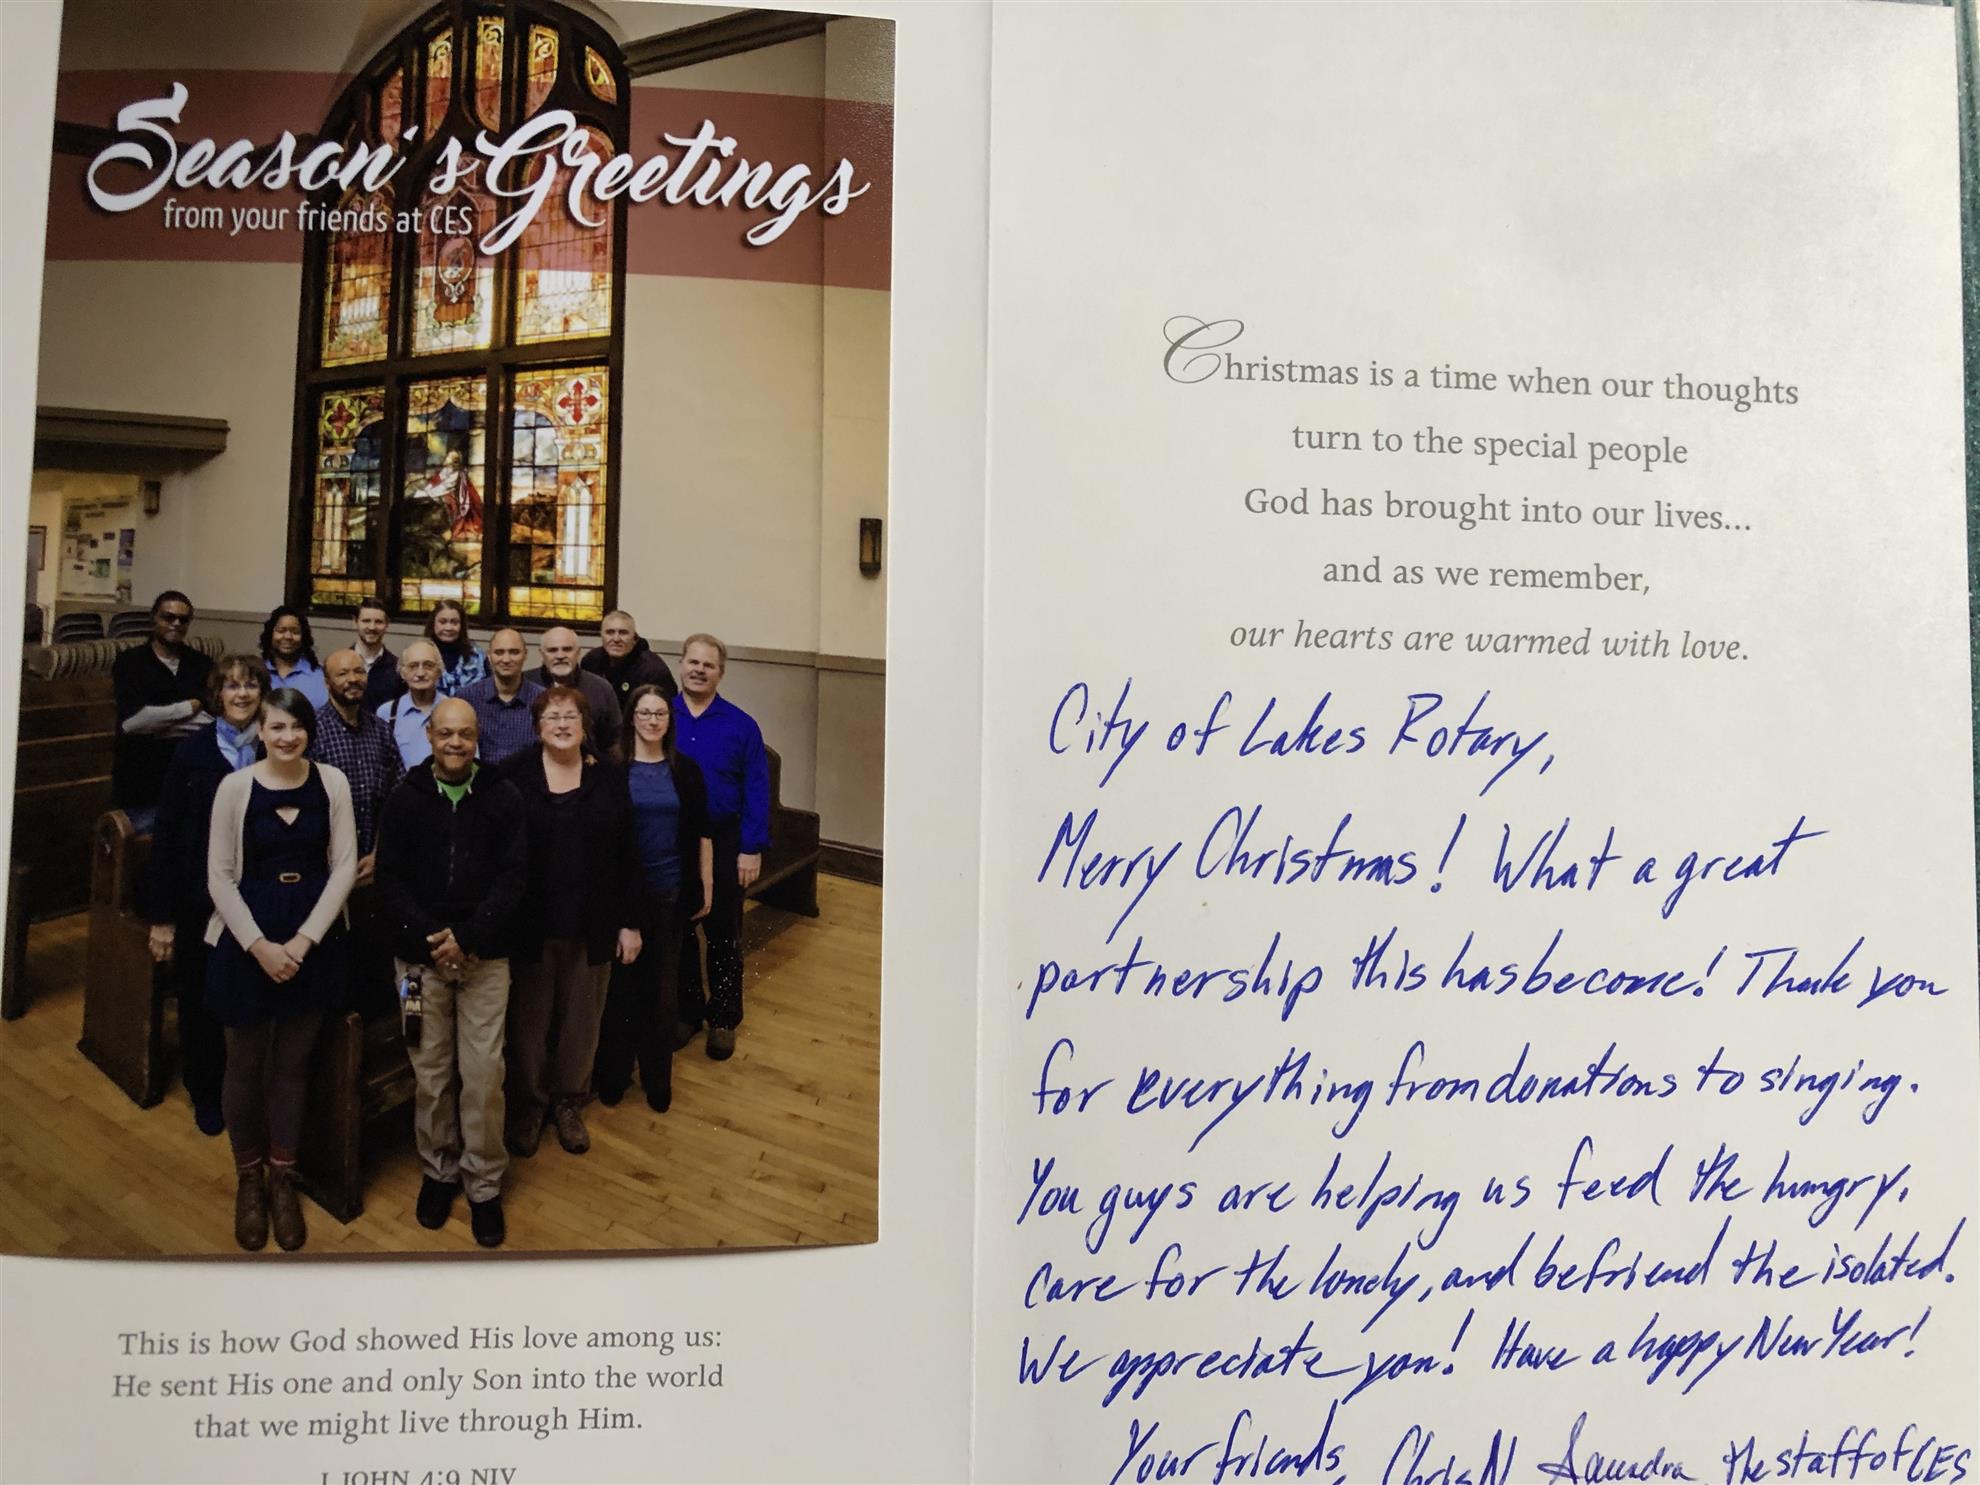 Season's Greetings
from your friends at CES
This is how God showed His love among us:
He sent His one and only Son into the world
that we might live through Him.
I JOHN 4:9 NIV
Christmas is a time when our thoughts
turn to the special people
God has brought into our lives...
and as we remember,
our hearts are warmed with love.
City of Lakes Rotary,
Merry Christmas! What a great
partnership this has become! Thank you
for everything from donations to singing.
You guys are helping us feed the hungry,
care for the lonely, and befriend the isolated.
We appreciate you! Have a happy New Year!
Your friends, Chris N Saundra, the staff of CES